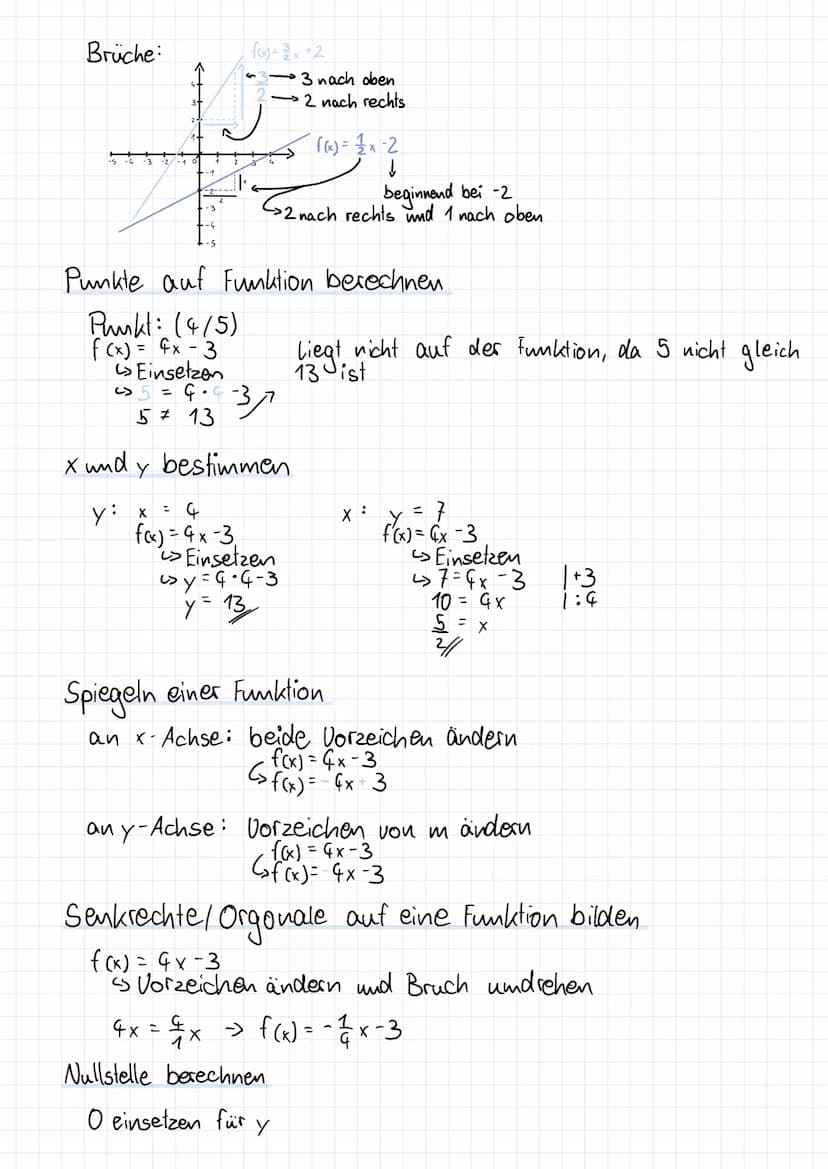 Brüche:
f(x) = 3/2 x + 2
3/2
3 nach oben
2 nach rechts
f(x) = 1/2 x - 2
beginnend bei -2
2 nach rechts und 1 nach oben
-5 -4 -3 -2 -1 0 1 2 3 4
4
3
2
1
-1
-2
-3
-4
-5
1
2
Punkte auf Funktion berechnen
Punkt: (4/5)
f(x) = 4x - 3
↳ Einsetzen
↳ 5 = 4 · 4 - 3
5 ≠ 13
liegt nicht auf der Funktion, da 5 nicht gleich
13 ist
x und y bestimmen
y: x = 4
f(x) = 4x - 3
↳ Einsetzen
↳ y = 4 · 4 - 3
y = 13
x: y = 7
f(x) = 4x - 3
↳ Einsetzen
↳ 7 = 4x - 3 | +3
10 = 4x | : 4
5/2 = x
Spiegeln einer Funktion
an x-Achse: beide Vorzeichen ändern
f(x) = 4x - 3
↳ f(x) = - 4x + 3
an y-Achse: Vorzeichen von m ändern
f(x) = 4x - 3
↳ f(x) = - 4x - 3
Senkrechte/Orgonale auf eine Funktion bilden
f(x) = 4x - 3
↳ Vorzeichen ändern und Bruch umdrehen
4x = 4/1 x → f(x) = - 1/4 x - 3
Nullstelle berechnen
0 einsetzen für y